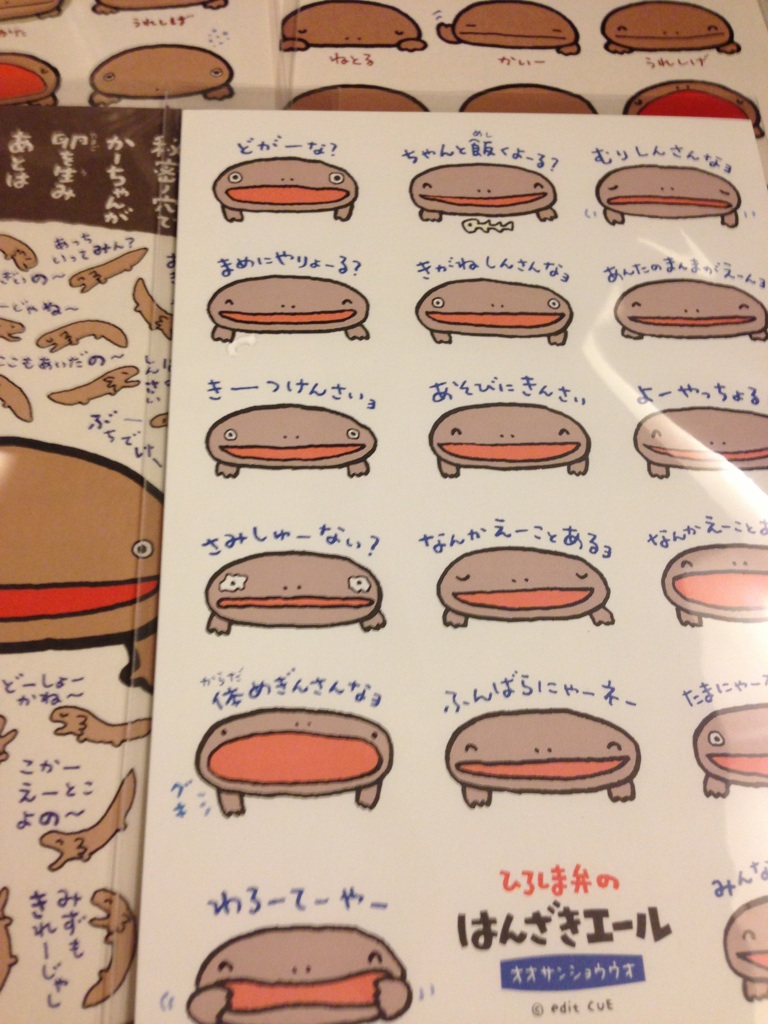 うれしげ
ねとる
かいー
うれしげ
かーちゃんが
卵を生み
あとは
あっち
いってみん?
ここもあいだの〜
どーしょー
かね〜
こかー
えーとこ
よの〜
みずも
きれーじゃし
どがーな?
ちゃんと飯くよーる?
めし
むりしんさんなョ
まめにやりょーる?
きがねしんさんなョ
あんたのまんまがえーんョ
きーつけんさいョ
あそびにきんさい
よーやっちょる
さみしゅーない?
なんかえーことあるョ
なんかえーことあ
からだ
体めぎんさんなョ
グキッ
ふんばらにゃーネー
たまにゃー
わろーてーやー
みんな
ひろしま弁の
はんざきエール
オオサンショウウオ
© edit CUE